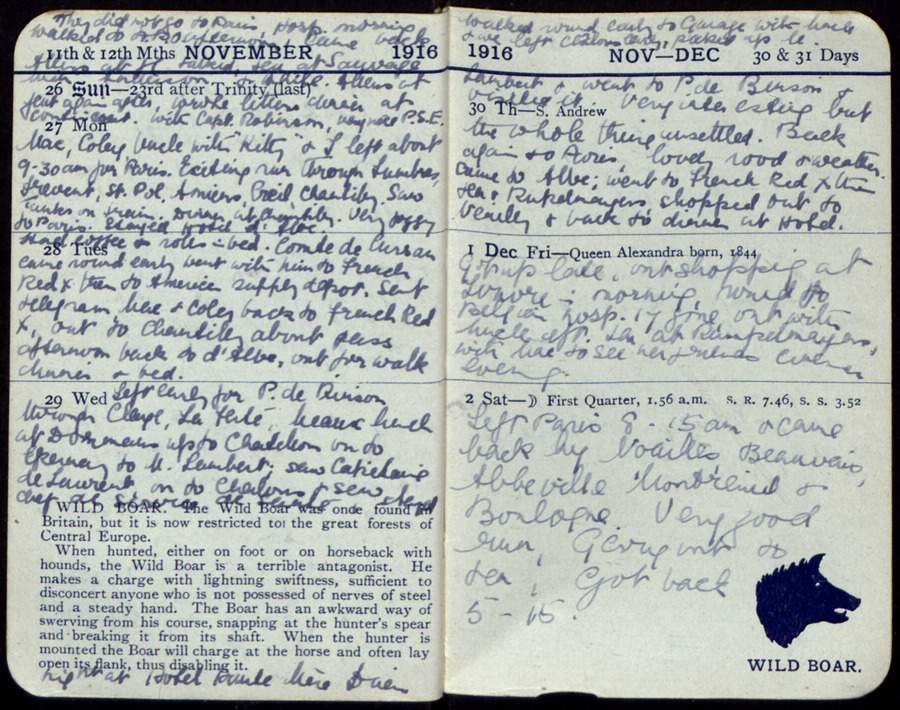 They did not go to Paris, Hosp. morning
walked to
11th & 12th Mths NOVEMBER 1916
26 Sun—23rd after Trinity (last)
wrote letters at
with Capt. Robinson, P.S.E.
27 Mon
Mac, Coley Uncle with "Kitty" & I left about
9-30am for Paris. Exciting run through Lumbres,
Frevent, St. Pol. Amiens, Creil, Chantilly. Saw
Tanks on train. Dinner at Chantilly. Very foggy
to Paris. Stayed Hotel d'Albe.
Had coffee & rolls in bed. Comte de
28 Tues
came round early went with him to French
Red X then to American supply depot. Sent
telegram, Mac & Coley back to French Red
X, out to Chantilly about pass
afternoon back to d'Albe, out for walk
dinner & bed.
29 Wed Left early for P. de Binson
through Claye, La Ferté, lunch
at Dormans up to Chatillon on to
Epernay to M. Lambert; saw
de on to Chalons & saw
chef
WILD BOAR. The Wild Boar was once found in
Britain, but it is now restricted to the great forests of
Central Europe.
When hunted, either on foot or on horseback with
hounds, the Wild Boar is a terrible antagonist. He
makes a charge with lightning swiftness, sufficient to
disconcert anyone who is not possessed of nerves of steel
and a steady hand. The Boar has an awkward way of
swerving from his course, snapping at the hunter's spear
and breaking it from its shaft. When the hunter is
mounted the Boar will charge at the horse and often lay
open its flank, thus disabling it.
night at Hotel Haute Mère Dieu
walked round early to Garage with Uncle
& we left Chalons early, picked up
1916 NOV—DEC 30 & 31 Days
Lambert & went to P. de Binson &
it. Very interesting but
30 Th—S. Andrew
the whole thing unsettled. Back
again to Paris. lovely road & weather.
Came to Albe; went to French Red X then
tea at Rumpelmayers, shopped out to
& back to dinner at Hotel.
1 Dec Fri—Queen Alexandra born, 1844
Got up late, out shopping at
Louvre in morning, round to
Belgian Hosp. out with
Uncle aft. tea at Rumpelmayers,
with Mac to see her friends
evening.
2 Sat—☽ First Quarter, 1.56 a.m. S. R. 7.46, S. S. 3.52
Left Paris 8-15am & came
back by Noailles Beauvais,
Abbeville Montreuil &
Boulogne. Very good
run, Going out to
tea, Got back
5-15.
WILD BOAR.